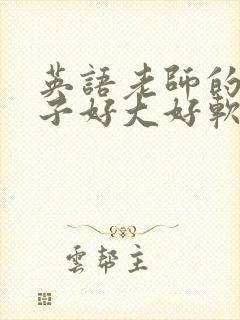 英語老師的
子好大好軟
雲幫主